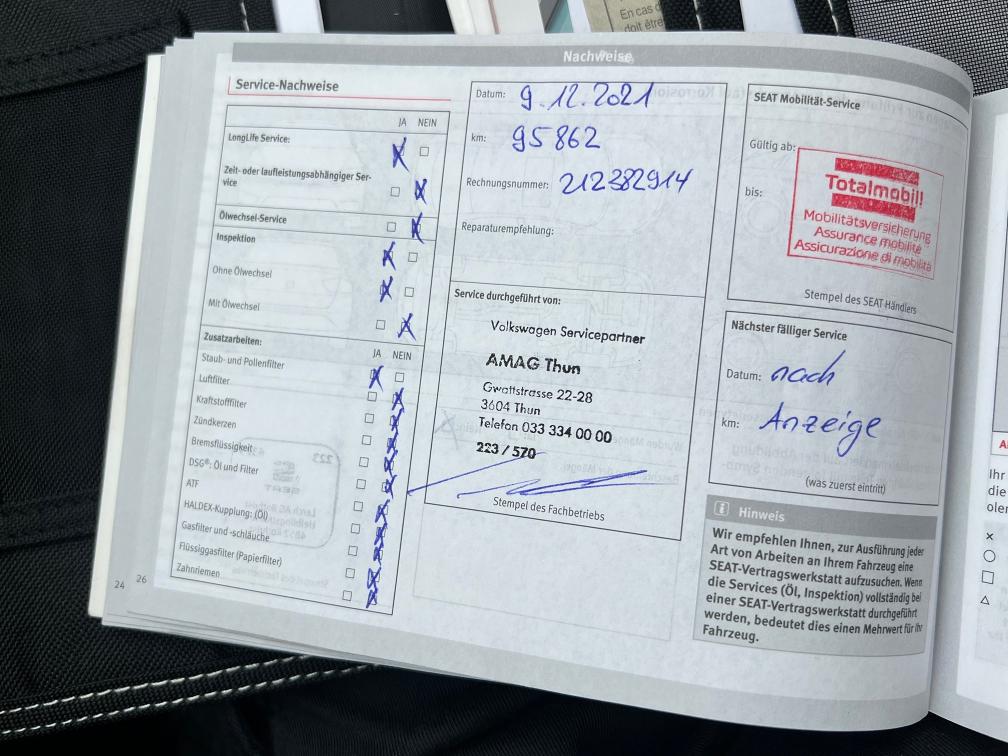 En cas d
doit être
Nachweise
Service-Nachweise
JA NEIN
LongLife Service:
Zeit- oder laufleistungsabhängiger Ser-
vice
Ölwechsel-Service
Inspektion
Ohne Ölwechsel
Mit Ölwechsel
Zusatzarbeiten: JA NEIN
Staub- und Pollenfilter
Luftfilter
Kraftstofffilter
Zündkerzen
Bremsflüssigkeit
DSG®: Öl und Filter
ATF
HALDEX-Kupplung: (Öl)
Gasfilter und -schläuche
Flüssiggasfilter (Papierfilter)
Zahnriemen
24 26
Datum: 9.12.2021
km: 95862
Rechnungsnummer: 212382914
Reparaturempfehlung:
Service durchgeführt von:
Volkswagen Servicepartner
AMAG Thun
Gwattstrasse 22-28
3604 Thun
Telefon 033 334 00 00
223 / 570
Stempel des Fachbetriebs
SEAT Mobilität-Service
Gültig ab:
bis:
Totalmobil!
Mobilitätsversicherung
Assurance mobilité
Assicurazione di mobilità
Stempel des SEAT-Händlers
Nächster fälliger Service
Datum: nach
km: Anzeige
(was zuerst eintritt)
i Hinweis
Wir empfehlen Ihnen, zur Ausführung jeder
Art von Arbeiten an Ihrem Fahrzeug eine
SEAT-Vertragswerkstatt aufzusuchen. Wenn
die Services (Öl, Inspektion) vollständig bei
einer SEAT-Vertragswerkstatt durchgeführt
werden, bedeutet dies einen Mehrwert für Ihr
Fahrzeug.
Ihr
die